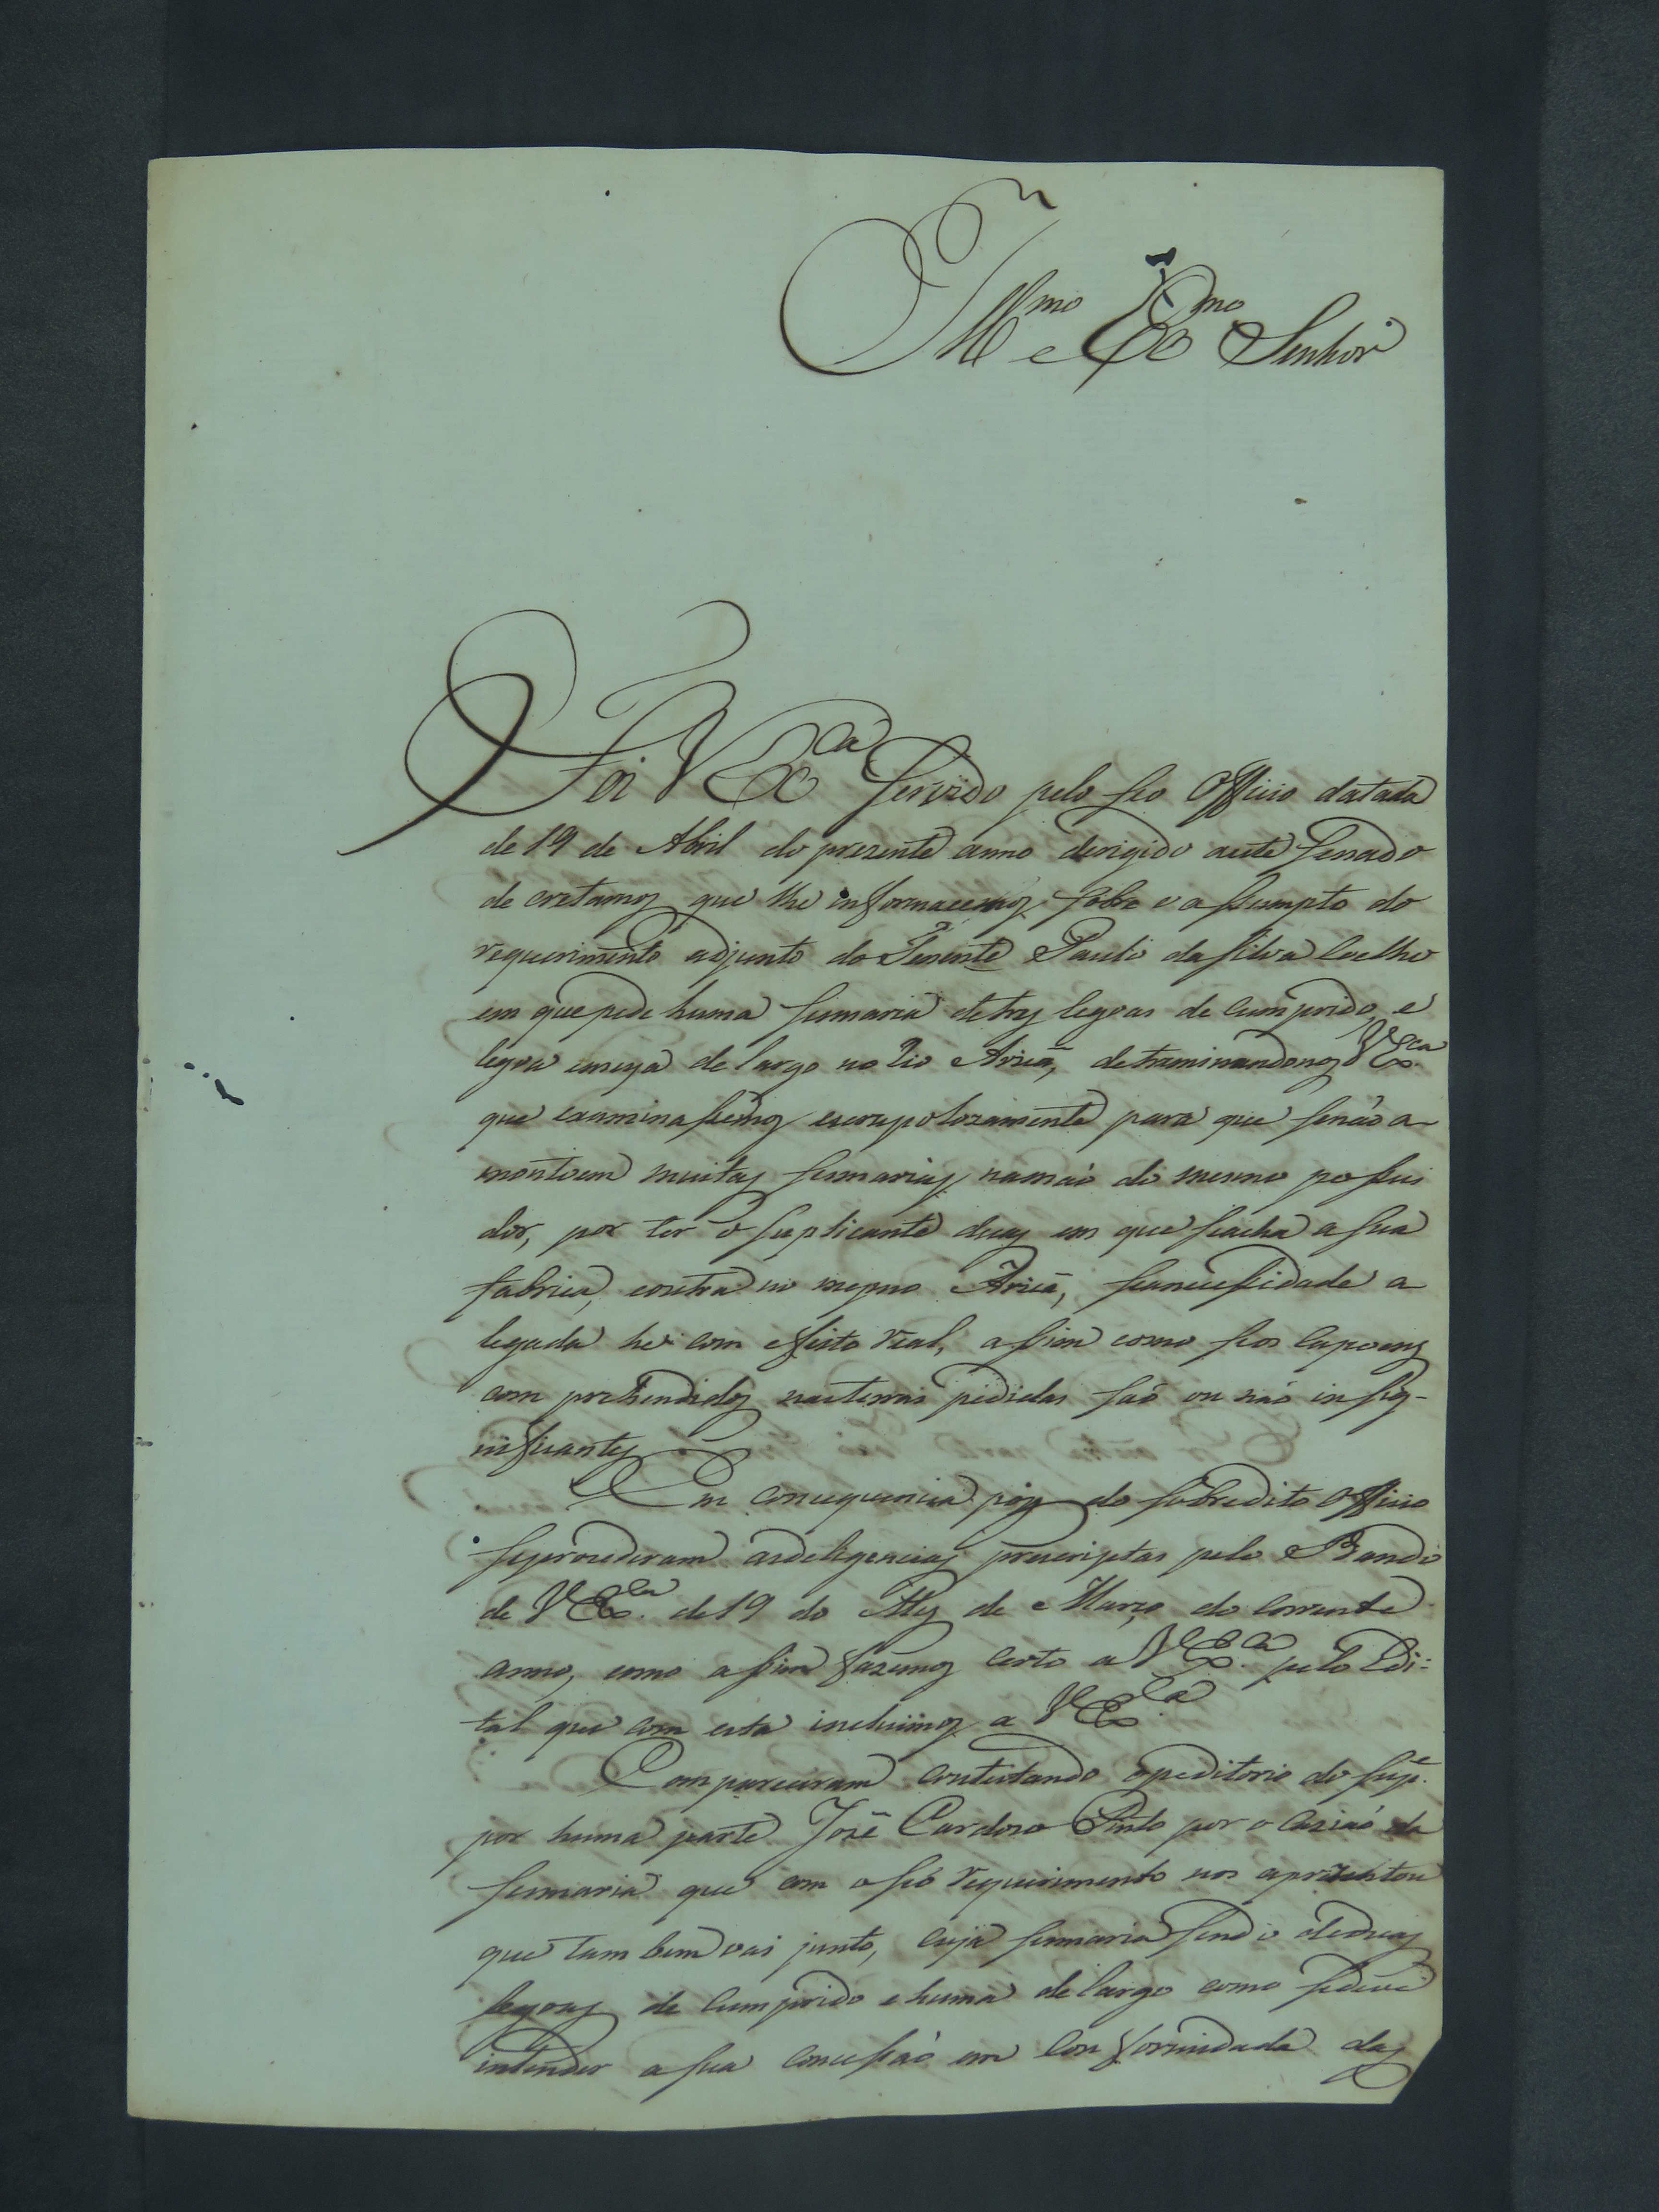 Ill.mo e Ex.mo Senhor
Foi V Ex.ca servido pelo seo Officio datada
de 19 de Abril do prezente anno derigido aeste Senado
de cretarnos que lhe informacemos sobre o assumpto do
requerimento adjunto do Tenente Paulo da silva Coelho
em que pede huma sismaria de tres legoas de cumprido, e
legoa emeya de largo no Rio Aricá, detriminandonos V Ex.ca
que examinassemos escrupolozamente para que senáo a-
montoem muitas sismarias namáo do mesmo possui
dor, por ter o suplicante duas em que seacha a sua
fabrica, eoutra no mesmo Aricá, seanecessidade a
legada he com effeito real, assim como seos capoens
com prehendidos nasterras pedidas saó ou náo insig-
nificantes
Em concequencia pois do sobredito Officio
seprosederam asdeligencias prescriptas pelo Bando
de V Ex.ca de 19 do Mes de Março do corrente
anno, como assim fazemos certo a V Ex.ca pelo Edi=
tal que com esta incluimos a V Ex.ca
Compareceram contestando opeditorio do sup.e
por huma parte José Cardozo Pinto por o caziáo da
sismaria que com oseó requerimento nos aprezentou
que tam bem vai junto, cuja sismaria sendo deduas
legoas de cumprido e huma de largo como sedeve
intender a sua concessáo em con formidade das